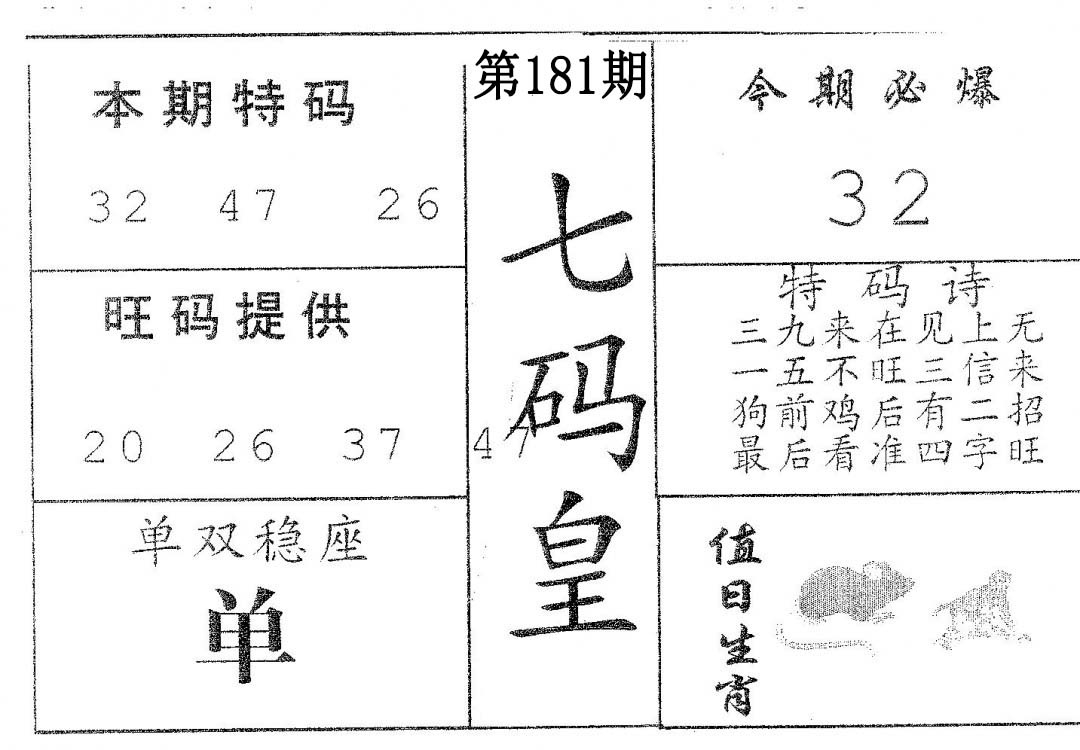 第181期
七码皇
本期特码
32 47 26
旺码提供
20 26 37 47
单双稳座
单
今期必爆
32
特码诗
三九来在见上无
一五不旺三信来
狗前鸡后有二招
最后看准四字旺
值日生肖